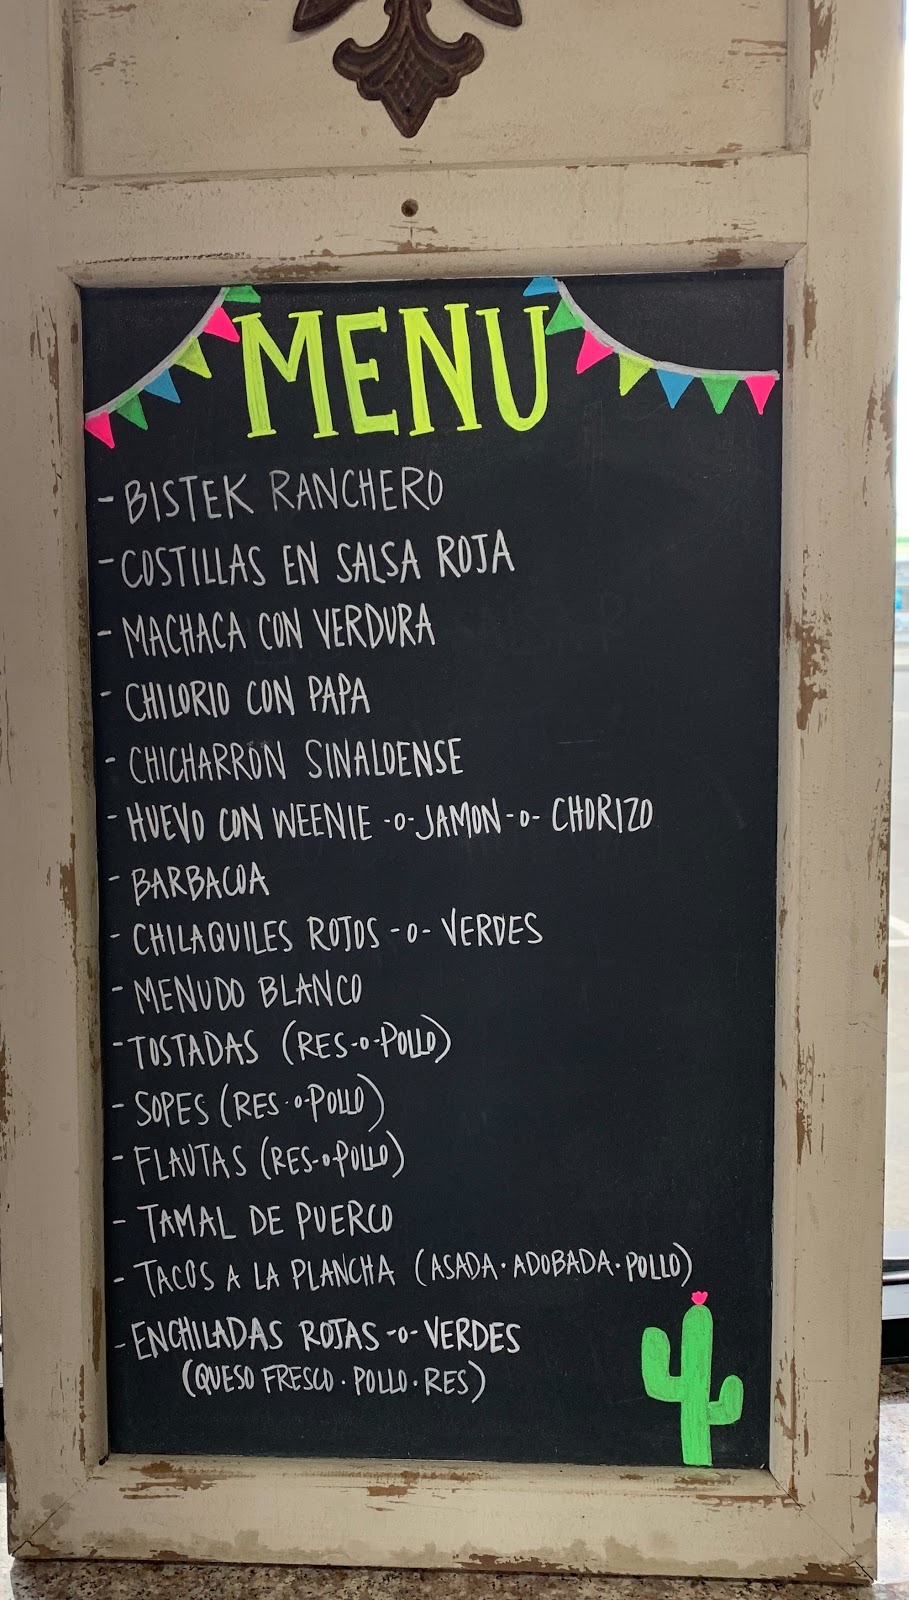 MENU
- BISTEK RANCHERO
- COSTILLAS EN SALSA ROJA
- MACHACA CON VERDURA
- CHILORIO CON PAPA
- CHICHARRÓN SINALOENSE
- HUEVO CON WEENIE -O- JAMON -O- CHORIZO
- BARBACOA
- CHILAQUILES ROJOS -O- VERDES
- MENUDO BLANCO
- TOSTADAS (RES -O- POLLO)
- SOPES (RES -O- POLLO)
- FLAUTAS (RES -O- POLLO)
- TAMAL DE PUERCO
- TACOS A LA PLANCHA (ASADA · ADOBADA · POLLO)
- ENCHILADAS ROJAS -O- VERDES
(QUESO FRESCO · POLLO · RES)